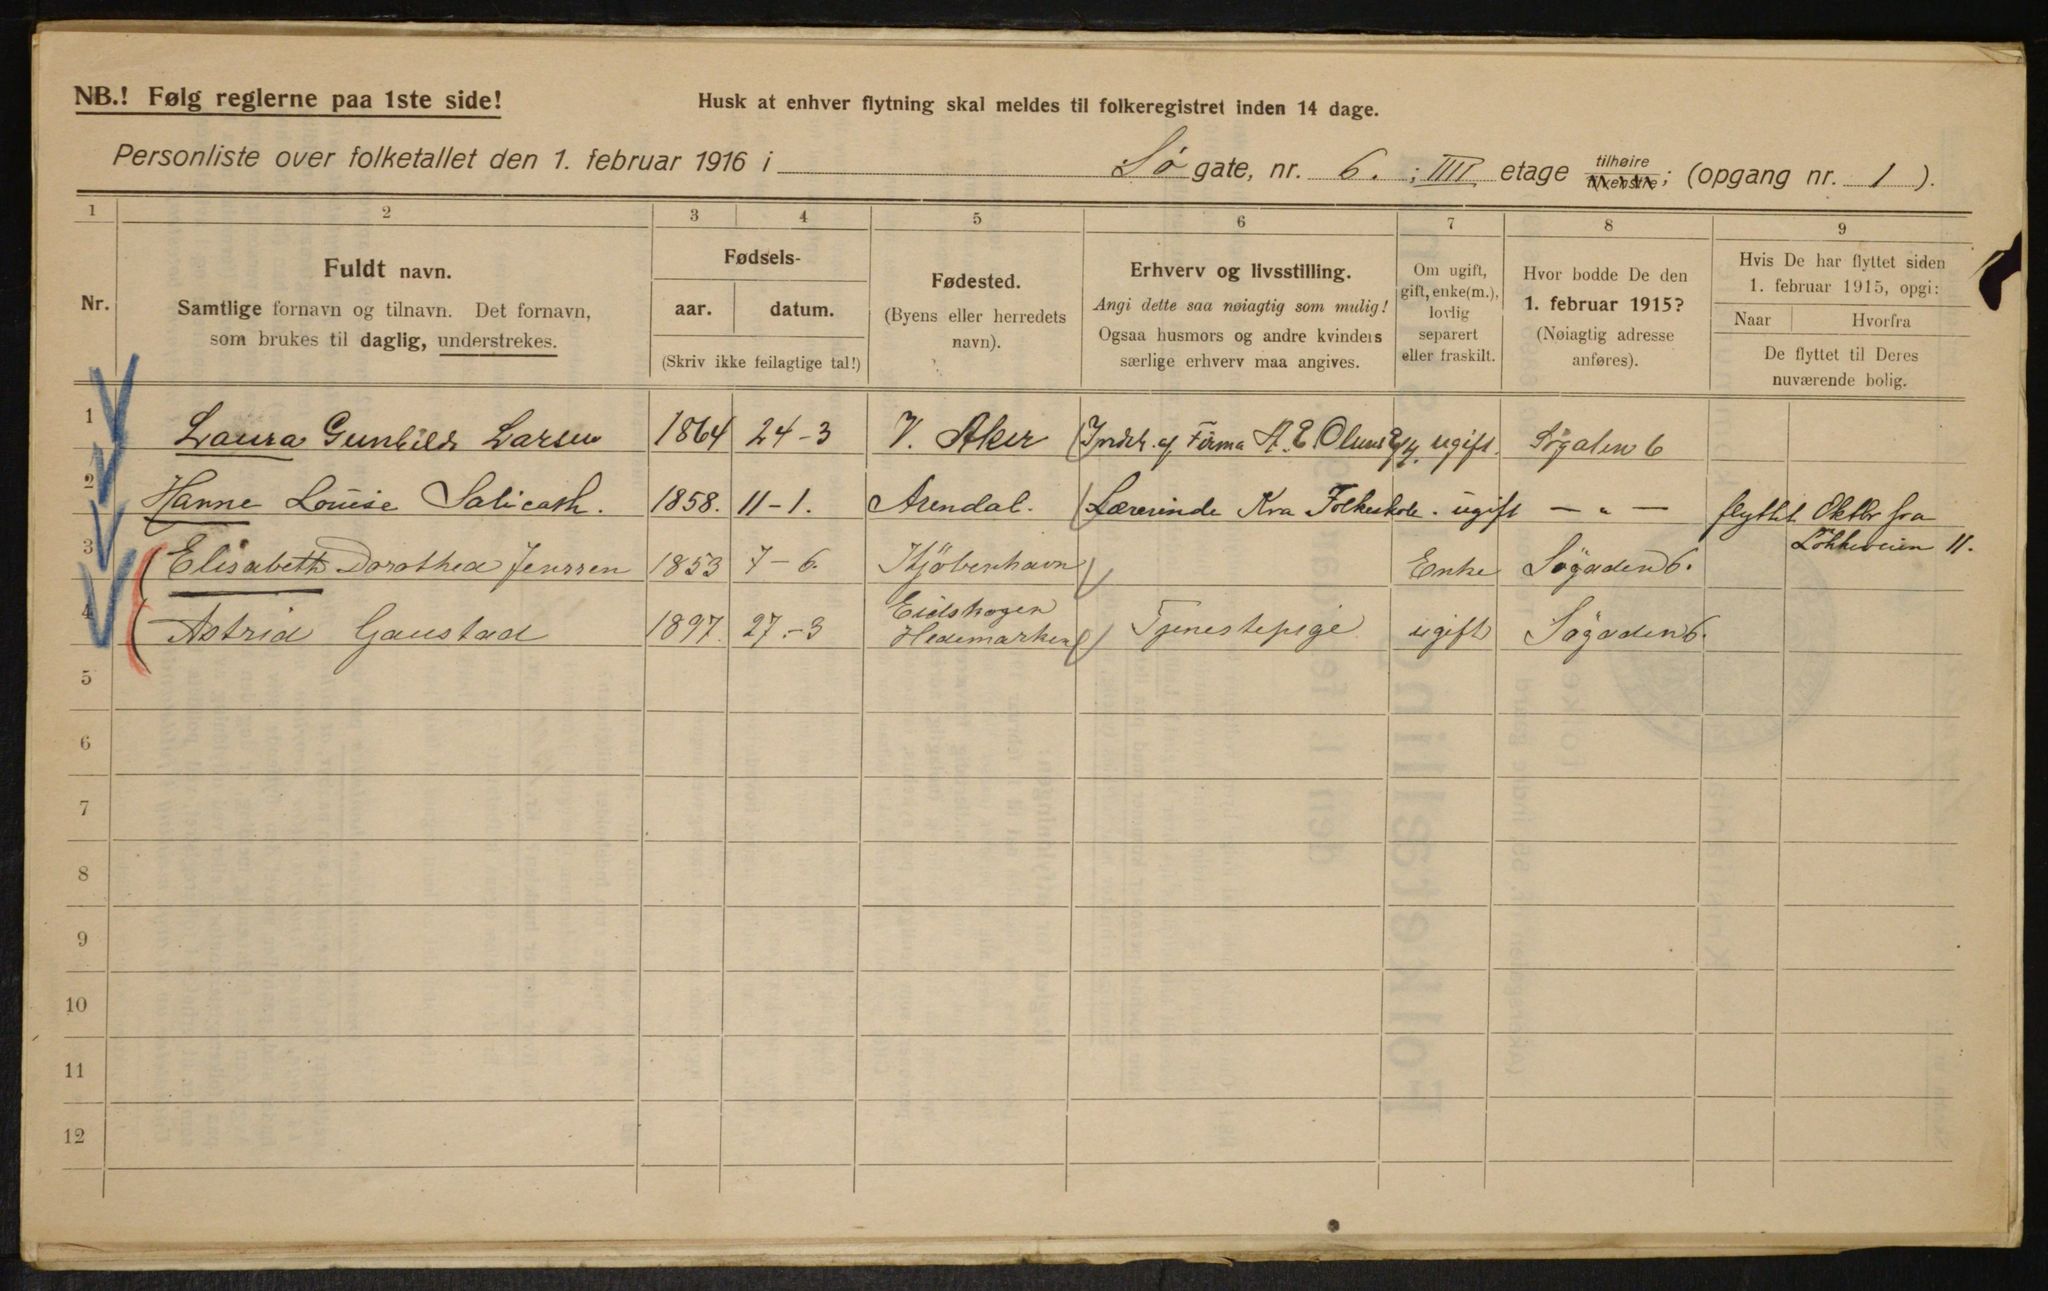 NB.! Følg reglerne paa 1ste side!
Husk at enhver flytning skal meldes til folkeregistret inden 14 dage.
Personliste over folketallet den 1. februar 1916 i Sø gate, nr. 6. ; IIII etage tilhøire tilvenstre; (opgang nr. 1 ).
1 2 3 4 5 6 7 8 9
Nr.
Fuldt navn.
Samtlige fornavn og tilnavn. Det fornavn,
som brukes til daglig, understrekes.
Fødsels-
aar. datum.
(Skriv ikke feilagtige tal!)
Fødested.
(Byens eller herredets
navn).
Erhverv og livsstilling.
Angi dette saa nøiagtig som mulig!
Ogsaa husmors og andre kvinders
særlige erhverv maa angives.
Om ugift,
gift, enke(m.),
lovlig
separert
eller fraskilt.
Hvor bodde De den
1. februar 1915?
(Nøiagtig adresse
anføres).
Hvis De har flyttet siden
1. februar 1915, opgi:
Naar Hvorfra
De flyttet til Deres
nuværende bolig.
1 Laura Gunhild Larsen 1864 24-3 V. Aker Indeh. af Firma A. E. ugift. Søgaten 6
2 Hanne Louise Salicath. 1858. 11-1. Arendal. Lærerinde Kra Folkeskole. ugift — „ — flyttet Oktbr fra
Løkkeveien 11.
3 Elisabeth Dorothea Jenssen 1853 7-6. Kjöbenhavn Enke Søgaden 6.
4 Astrid Gaustad 1897. 27.-3 Eidskogen
Hedemarken Tjenestepige ugift Søgaden 6.
5
6
7
8
9
10
11
12